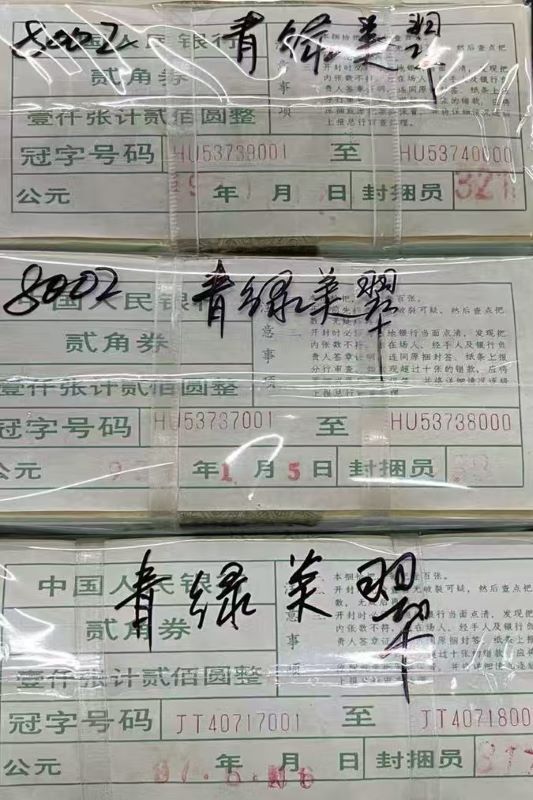 8002 青绿美翠
中国人民银行
贰角券
壹仟张计贰佰圆整
注意事项
然后查点把
开封时必 发现把
张数不符 在场人、经手人及银行负
责人签章证明，连同原捆封签、纸条上报
冠字号码 HU53739001 至 HU53740000
公元 9 年 月 日 封捆员 321
8002 青绿美翠
中国人民银行
贰角券
壹仟张计贰佰圆整
意事项
百张。
破裂可疑，然后查点把
开封时必 地银行当面点清，发现把
内张数不符，在场人、经手人及银行负
责人签章证明，连同原捆封签、纸条上报
分行审查。如发现超过十张的错款，应将
并将详细情况逐级
冠字号码 HU53737001 至 HU53738000
公元 9 年1月5日 封捆员
青绿美翠
中国人民银行
贰角券
壹仟张计贰佰圆整
意事项
本捆 百张。
无破裂可疑，然后查点把
数，无疑
开封时必 行当面点清，发现把
内张数不符， 在场人、经手人及银行负
责人签章证 同原捆封签、纸条上报
冠字号码 JT40717001 至 JT40718000
公元 97 年 6 月 26 日 封捆员 317